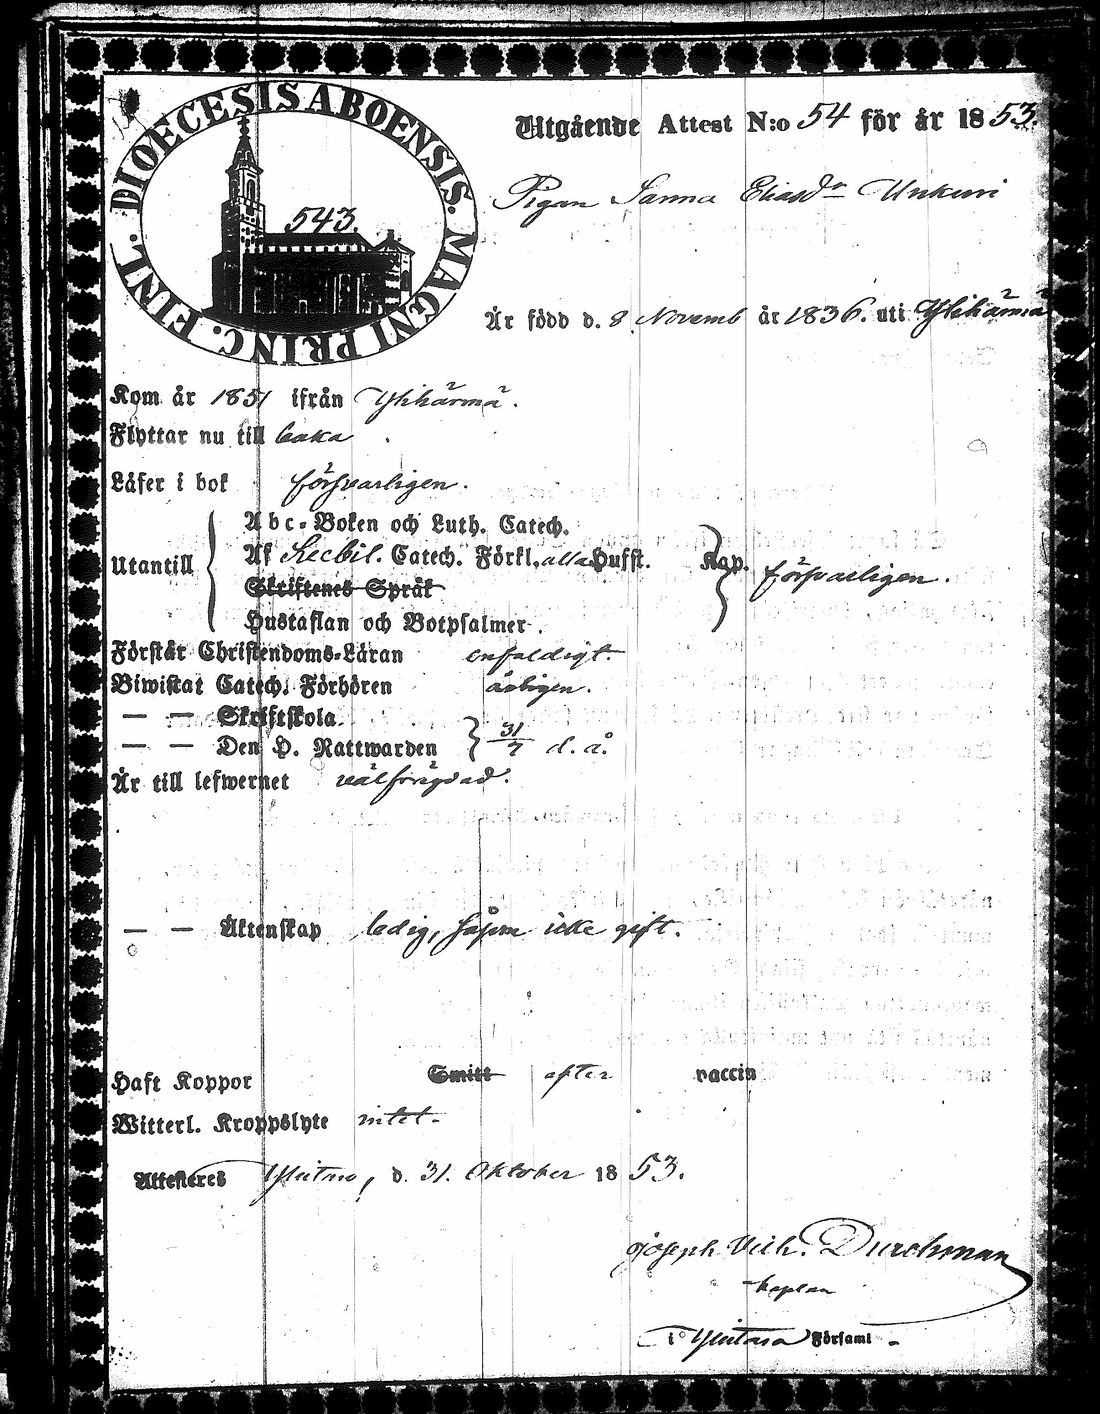 DIOECESIS ABOENSIS. MAGNI PRINC. FINL.
543.
Utgående Attest N:o 54 för år 1853.
Pigan Sanna Eliasdr Unkuri
Är född d. 8 Novemb år 1836. uti Ylihärmä
Kom år 1851 ifrån Ylihärmä.
Flyttar nu till baka.
Läser i bok försvarligen.
Abc-Boken och Luth. Catech.
Utantill Af Lecbil. Catech. Förkl. alla Hufst. Kap. försvarligen.
Skriftenes Språk
Hustaflan och Botpsalmer.
Förstår Christendoms-Läran enfaldigt.
Biwistat Catech. Förhören årligen.
— — Skriftskola.
— — Den H. Nattwarden 31/7 d. å.
Är till lefwernet välfrägdad.
— — Äktenskap ledig, såsom icke gift.
Haft Koppor Smitt efter vaccin
Witterl. Kroppslyte intet.
Attesteras d. 31. Oktober 1853.
Joseph Vilh. Durchman
kaplan
i Församl.